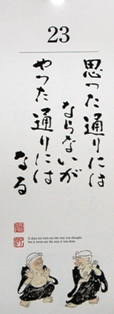 23
思った通りには
ならないが
やった通りには
なる
It does not turn out the way you thought,
but it turns out the way it was done.